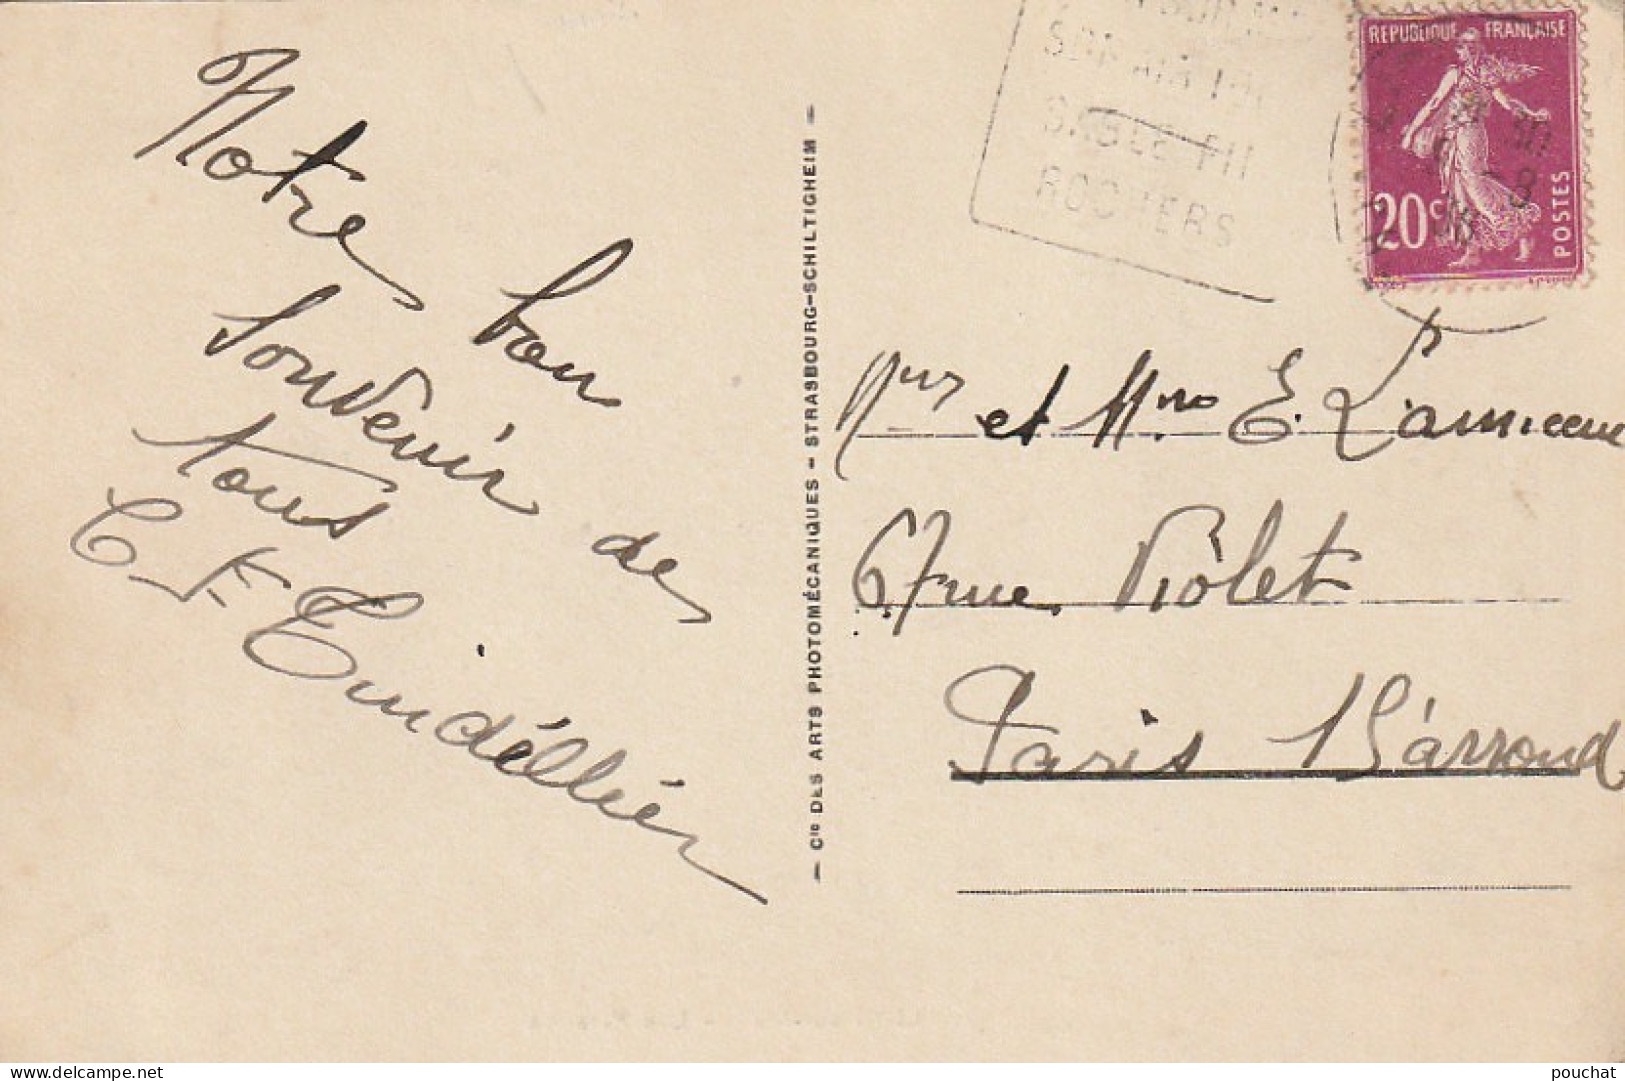 Notre bon
souvenir de
tous
— Cie DES ARTS PHOTOMÉCANIQUES - STRASBOURG-SCHILTIGHEIM —
SON AIR
SABLE FIN
ROCHERS
REPUBLIQUE FRANÇAISE
20c
POSTES
et Mme E.
67 rue Violet
Paris 15 arrond
pouchat